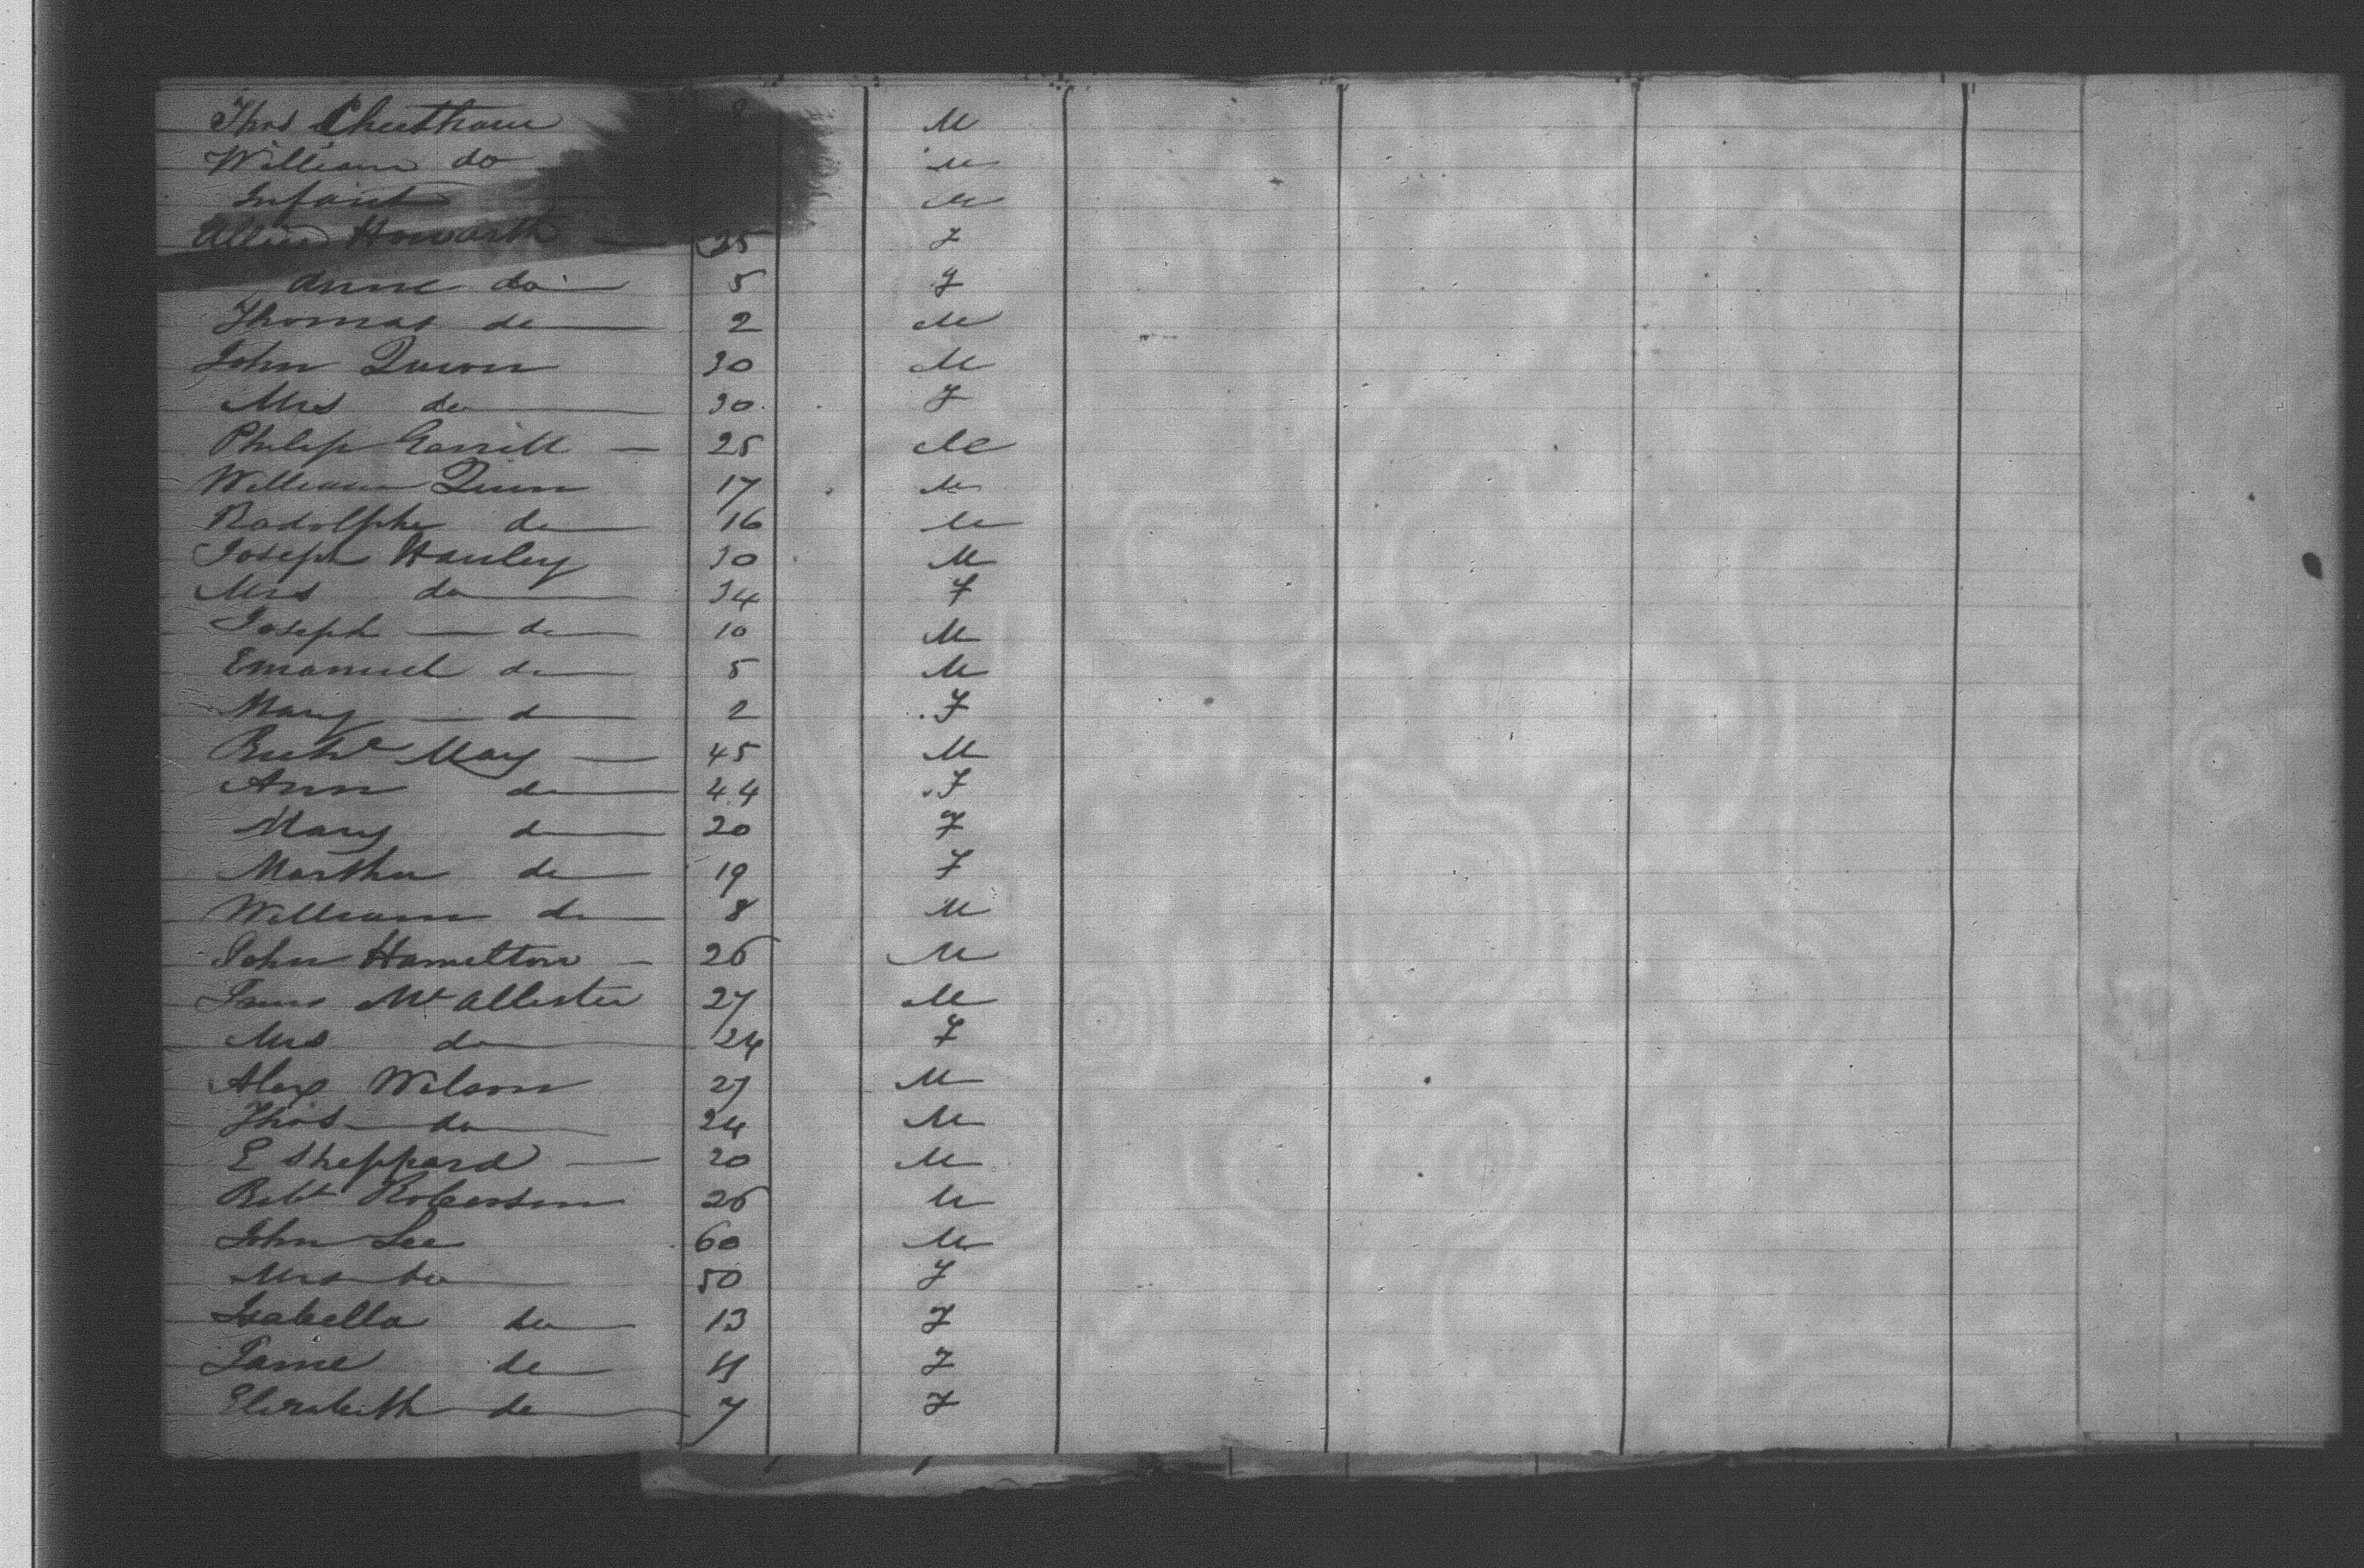 Thos Cheetham 8 M
William do M
Infant M
Howarth 35 F
Anne do 5 F
Thomas do 2 M
John Quinn 30 M
Mrs do 30 F
Philip 25 M
William Quinn 17 M
Radolphe do 16 M
Joseph Hanley 30 M
Mrs do 34 F
Joseph do 10 M
Emanuel do 5 M
Mary do 2 F
Richd May 45 M
Ann do 44 F
Mary do 20 F
Martha do 19 F
William do 8 M
John Hamelton 26 M
James McAllister 27 M
Mrs do 24 F
Alex Wilson 27 M
Thos do 24 M
E Sheppard 20 M
Robt Roberson 26 M
John Lee 60 M
Mrs do 50 F
Isabella do 13 F
Jane do 11 F
Elizabeth do 7 F